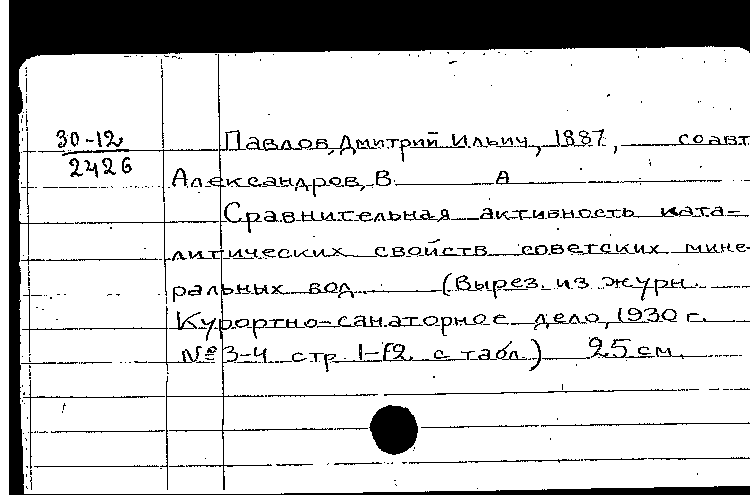 30-12
2426
Павлов, Дмитрий Ильич, 1887, соавт
Александров, В. А
Сравнительная активность ката-
литических свойств советских мине-
ральных вод (Вырез. из журн.
Курортно-санаторное дело, 1930 г.
№ 3-4 стр. 1-12. с табл.) 25 см.